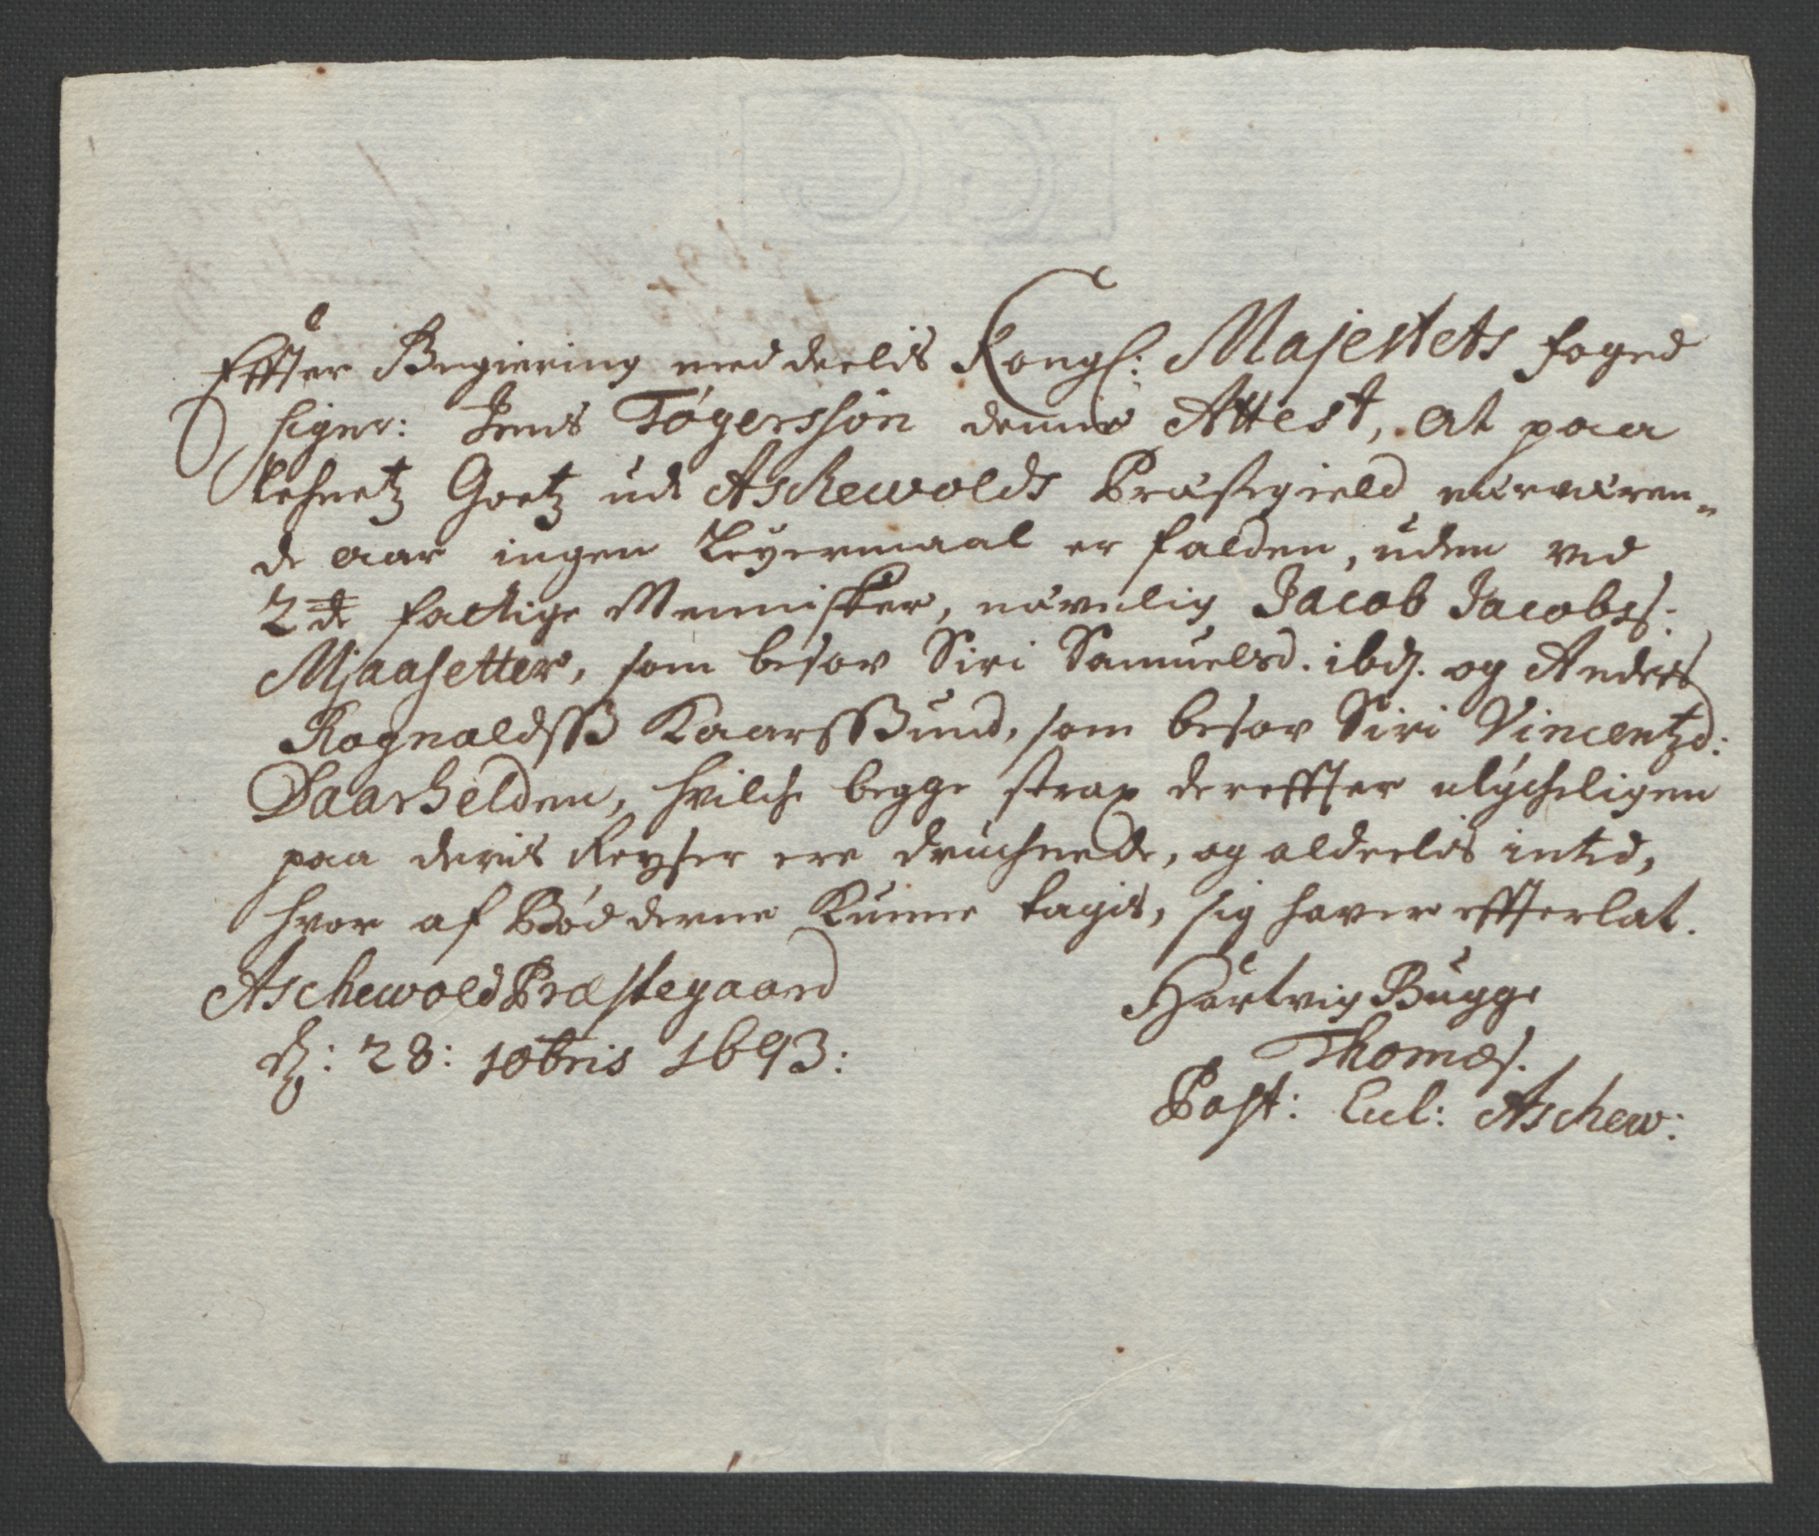 Effter Begiering med deelis Kongl: Majestets foged
Signr: Jens Tøgerssøn denne Attest, at paa
Lehnetz Goetz udi Aschewolds Præstegield nærwæren„
de aar ingen Leyermaal er falden, uden ved
2de fattige Mennisker, nævnlig Jacob Jacobss.
Mjaasetter, som besov Siri Samuelsd. ibd. og Anders
Rognaldsß Kaarsßund, som besov Siri Vincentzd:
Saarhelden, hvilche begge strax dereffter ulycheligen
paa deris Reyser ere druchnede, og aldeelis inted,
hvor af Bødderne kunne tagis, sig haver effterlat.
Aschewold Præstegaard
d: 28: 10bris 1693:
Hartvig Bugge
Thomæs.
Past: Eccl: Aschew: